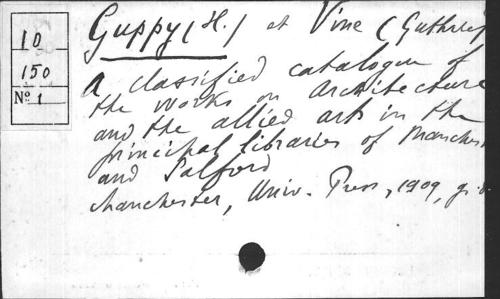 10
150
Nº 1
Guppy (H.) et Vine (Guthrie)
A classified catalogue of
the works on Architecture
and the allied arts in the
principal libraries of Manches
and Salford
Manchester, Univ. Press, 1909,